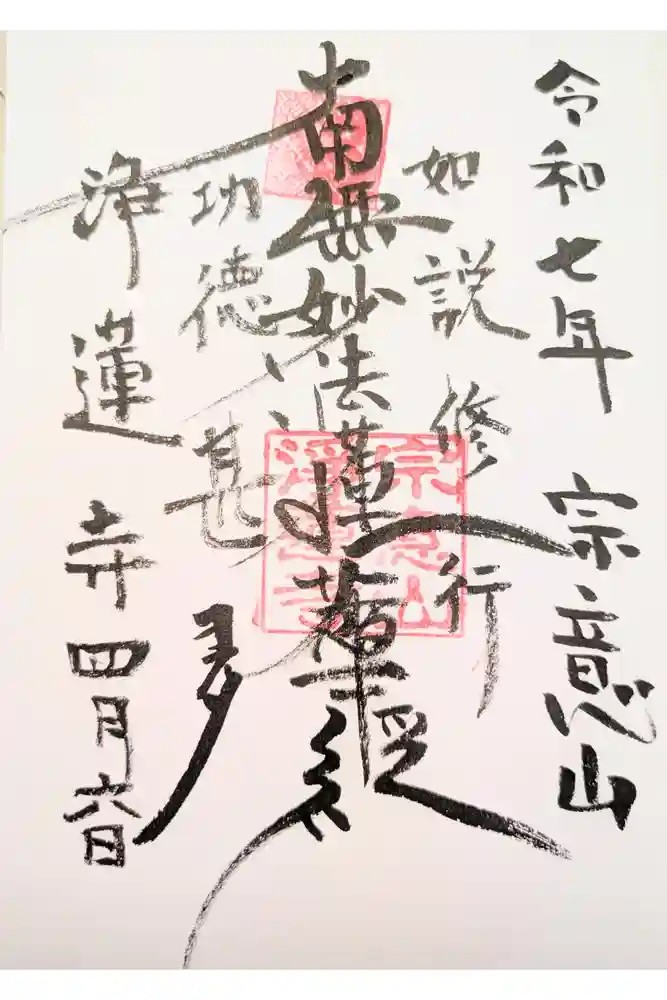 令和七年 宗意山
如説修行
南無妙法蓮華経
功徳甚多
浄蓮寺 四月六日
宗意山
浄蓮寺